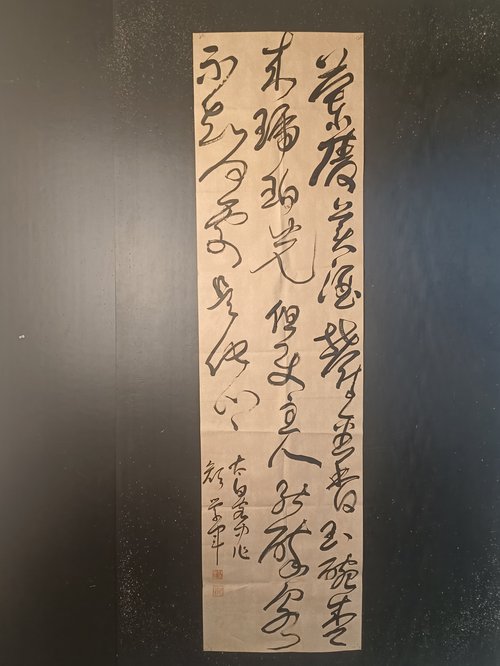 蘭陵美酒鬱金香玉碗盛
来琥珀光但使主人能醉客
不知何處是他鄉
太白客中作